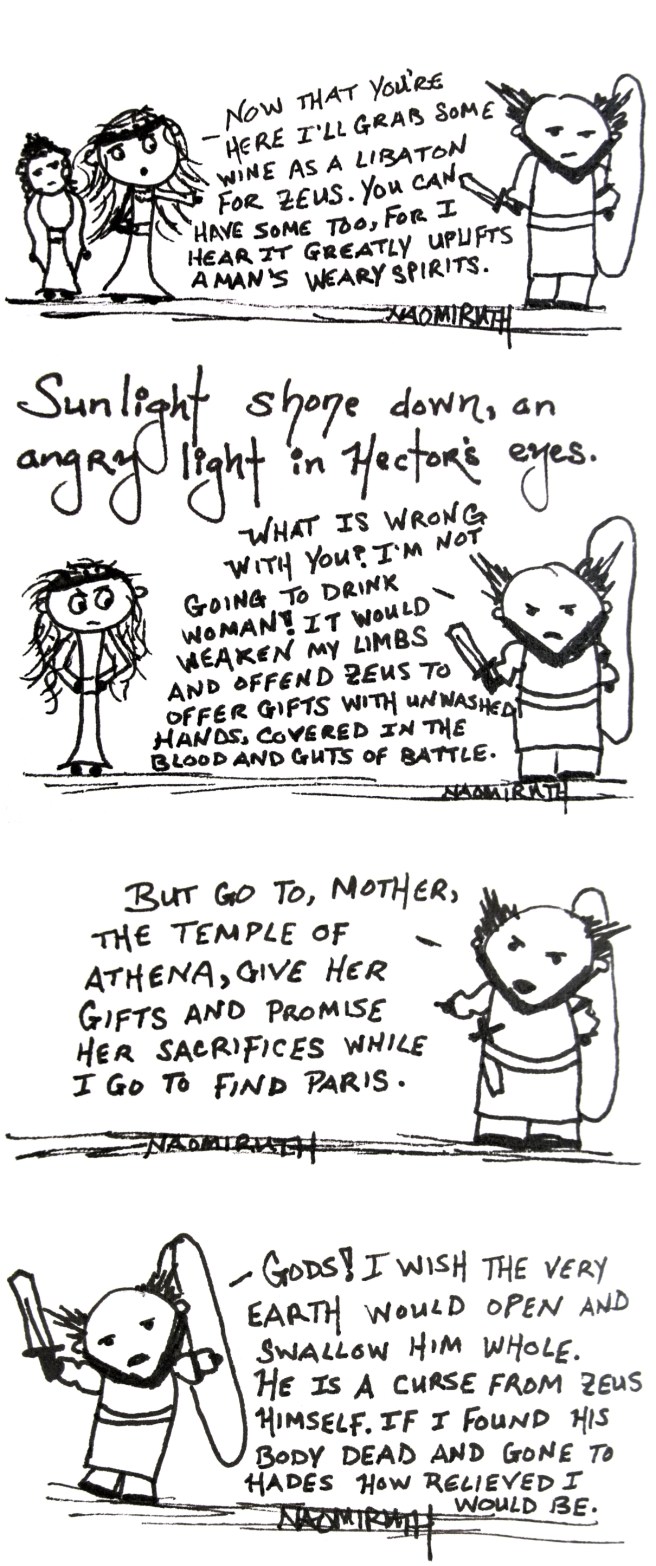 NOW THAT YOU'RE
HERE I'LL GRAB SOME
WINE AS A LIBATON
FOR ZEUS. YOU CAN
HAVE SOME TOO, FOR I
HEAR IT GREATLY UPLIFTS
A MAN'S WEARY SPIRITS.
NAOMIRUTH
Sunlight shone down, an
angry light in Hector's eyes.
WHAT IS WRONG
WITH YOU? I'M NOT
GOING TO DRINK
WOMAN! IT WOULD
WEAKEN MY LIMBS
AND OFFEND ZEUS TO
OFFER GIFTS WITH UNWASHED
HANDS, COVERED IN THE
BLOOD AND GUTS OF BATTLE.
NAOMIRUTH
BUT GO TO, MOTHER,
THE TEMPLE OF
ATHENA, GIVE HER
GIFTS AND PROMISE
HER SACRIFICES WHILE
I GO TO FIND PARIS.
NAOMIRUTH
GODS! I WISH THE VERY
EARTH WOULD OPEN AND
SWALLOW HIM WHOLE.
HE IS A CURSE FROM ZEUS
HIMSELF. IF I FOUND HIS
BODY DEAD AND GONE TO
HADES HOW RELIEVED I
WOULD BE.
NAOMIRUTH